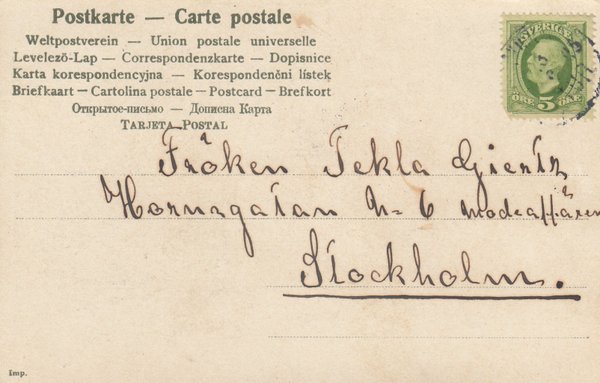 Postkarte — Carte postale
Weltpostverein — Union postale universelle
Levelező-Lap — Correspondenzkarte — Dopisnice
Karta korespondencyjna — Korespondenční lístek
Briefkaart — Cartolina postale — Postcard — Brefkort
Открытое-письмо — Дописна Карта
TARJETA POSTAL
SVERIGE
ÖRE 5 ÖRE
Fröken Tekla Giertz
Hornsgatan N= 6 modeaffären
Stockholm.
Imp.